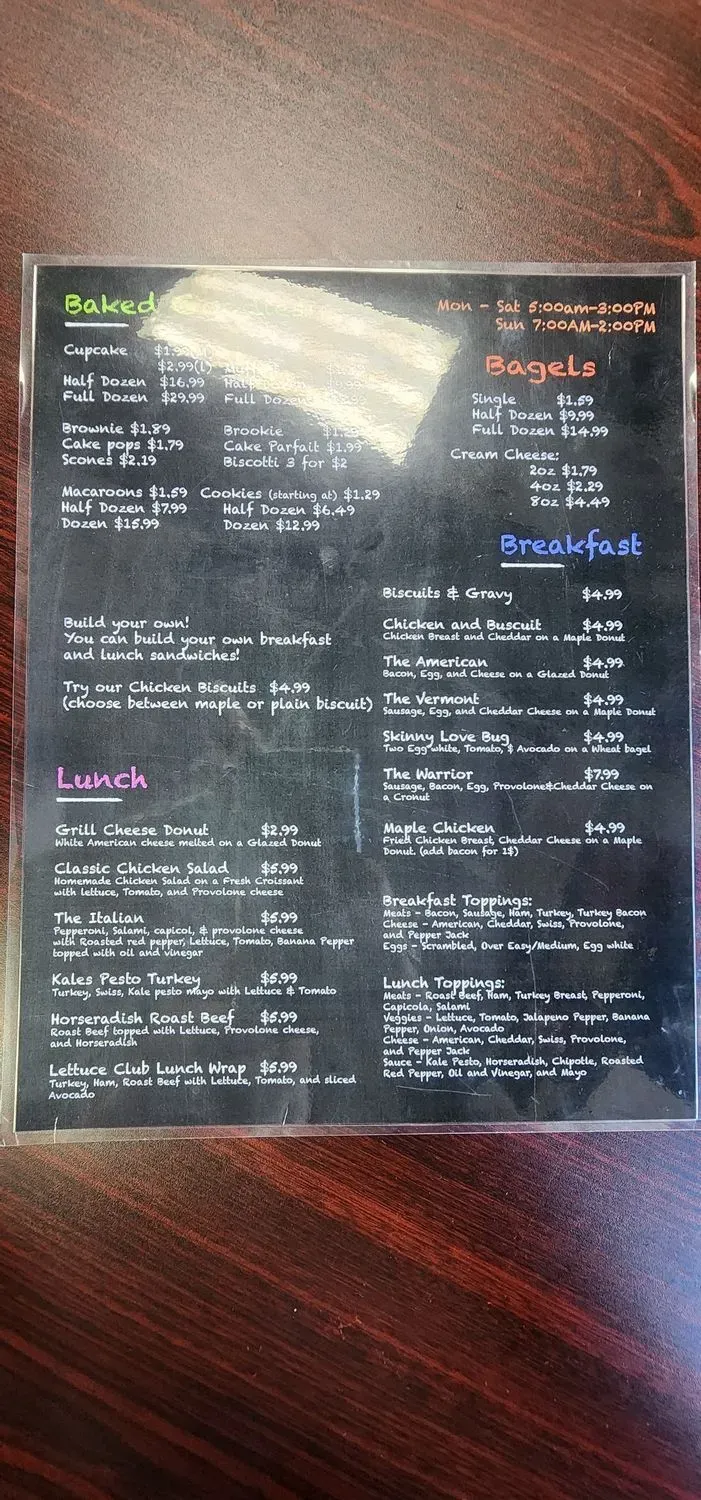 Baked
Cupcake
$2.99(l)
Half Dozen $16.99
Full Dozen $29.99
Full Dozen
Brownie $1.89
Cake pops $1.79
Scones $2.19
Brookie
Cake Parfait $1.99
Biscotti 3 for $2
Macaroons $1.59
Half Dozen $7.99
Dozen $15.99
Cookies (starting at) $1.29
Half Dozen $6.49
Dozen $12.99
Build your own!
You can build your own breakfast
and lunch sandwiches!
Try our Chicken Biscuits $4.99
(choose between maple or plain biscuit)
Lunch
Grill Cheese Donut $2.99
White American cheese melted on a Glazed Donut
Classic Chicken Salad $5.99
Homemade Chicken Salad on a Fresh Croissant
with lettuce, Tomato, and Provolone cheese
The Italian $5.99
Pepperoni, Salami, capicol, & provolone cheese
with Roasted red pepper, Lettuce, Tomato, Banana Pepper
topped with oil and vinegar
Kales Pesto Turkey $5.99
Turkey, Swiss, Kale pesto mayo with Lettuce & Tomato
Horseradish Roast Beef $5.99
Roast Beef topped with Lettuce, Provolone cheese,
and Horseradish
Lettuce Club Lunch Wrap $5.99
Turkey, Ham, Roast Beef with Lettuce, Tomato, and sliced
Avocado
Mon - Sat 5:00am-3:00PM
Sun 7:00AM-2:00PM
Bagels
Single $1.59
Half Dozen $9.99
Full Dozen $14.99
Cream Cheese:
2oz $1.79
4oz $2.29
8oz $4.49
Breakfast
Biscuits & Gravy $4.99
Chicken and Buscuit $4.99
Chicken Breast and Cheddar on a Maple Donut
The American $4.99
Bacon, Egg, and Cheese on a Glazed Donut
The Vermont $4.99
Sausage, Egg, and Cheddar Cheese on a Maple Donut
Skinny Love Bug $4.99
Two Egg white, Tomato, & Avocado on a Wheat bagel
The Warrior $7.99
Sausage, Bacon, Egg, Provolone&Cheddar Cheese on
a Cronut
Maple Chicken $4.99
Fried Chicken Breast, Cheddar Cheese on a Maple
Donut. (add bacon for 1$)
Breakfast Toppings:
Meats - Bacon, Sausage, Ham, Turkey, Turkey Bacon
Cheese - American, Cheddar, Swiss, Provolone,
and Pepper Jack
Eggs - Scrambled, Over Easy/Medium, Egg white
Lunch Toppings:
Meats - Roast Beef, Ham, Turkey Breast, Pepperoni,
Capicola, Salami
Veggies - Lettuce, Tomato, Jalapeno Pepper, Banana
Pepper, Onion, Avocado
Cheese - American, Cheddar, Swiss, Provolone,
and Pepper Jack
Sauce - Kale Pesto, Horseradish, Chipotle, Roasted
Red Pepper, Oil and Vinegar, and Mayo